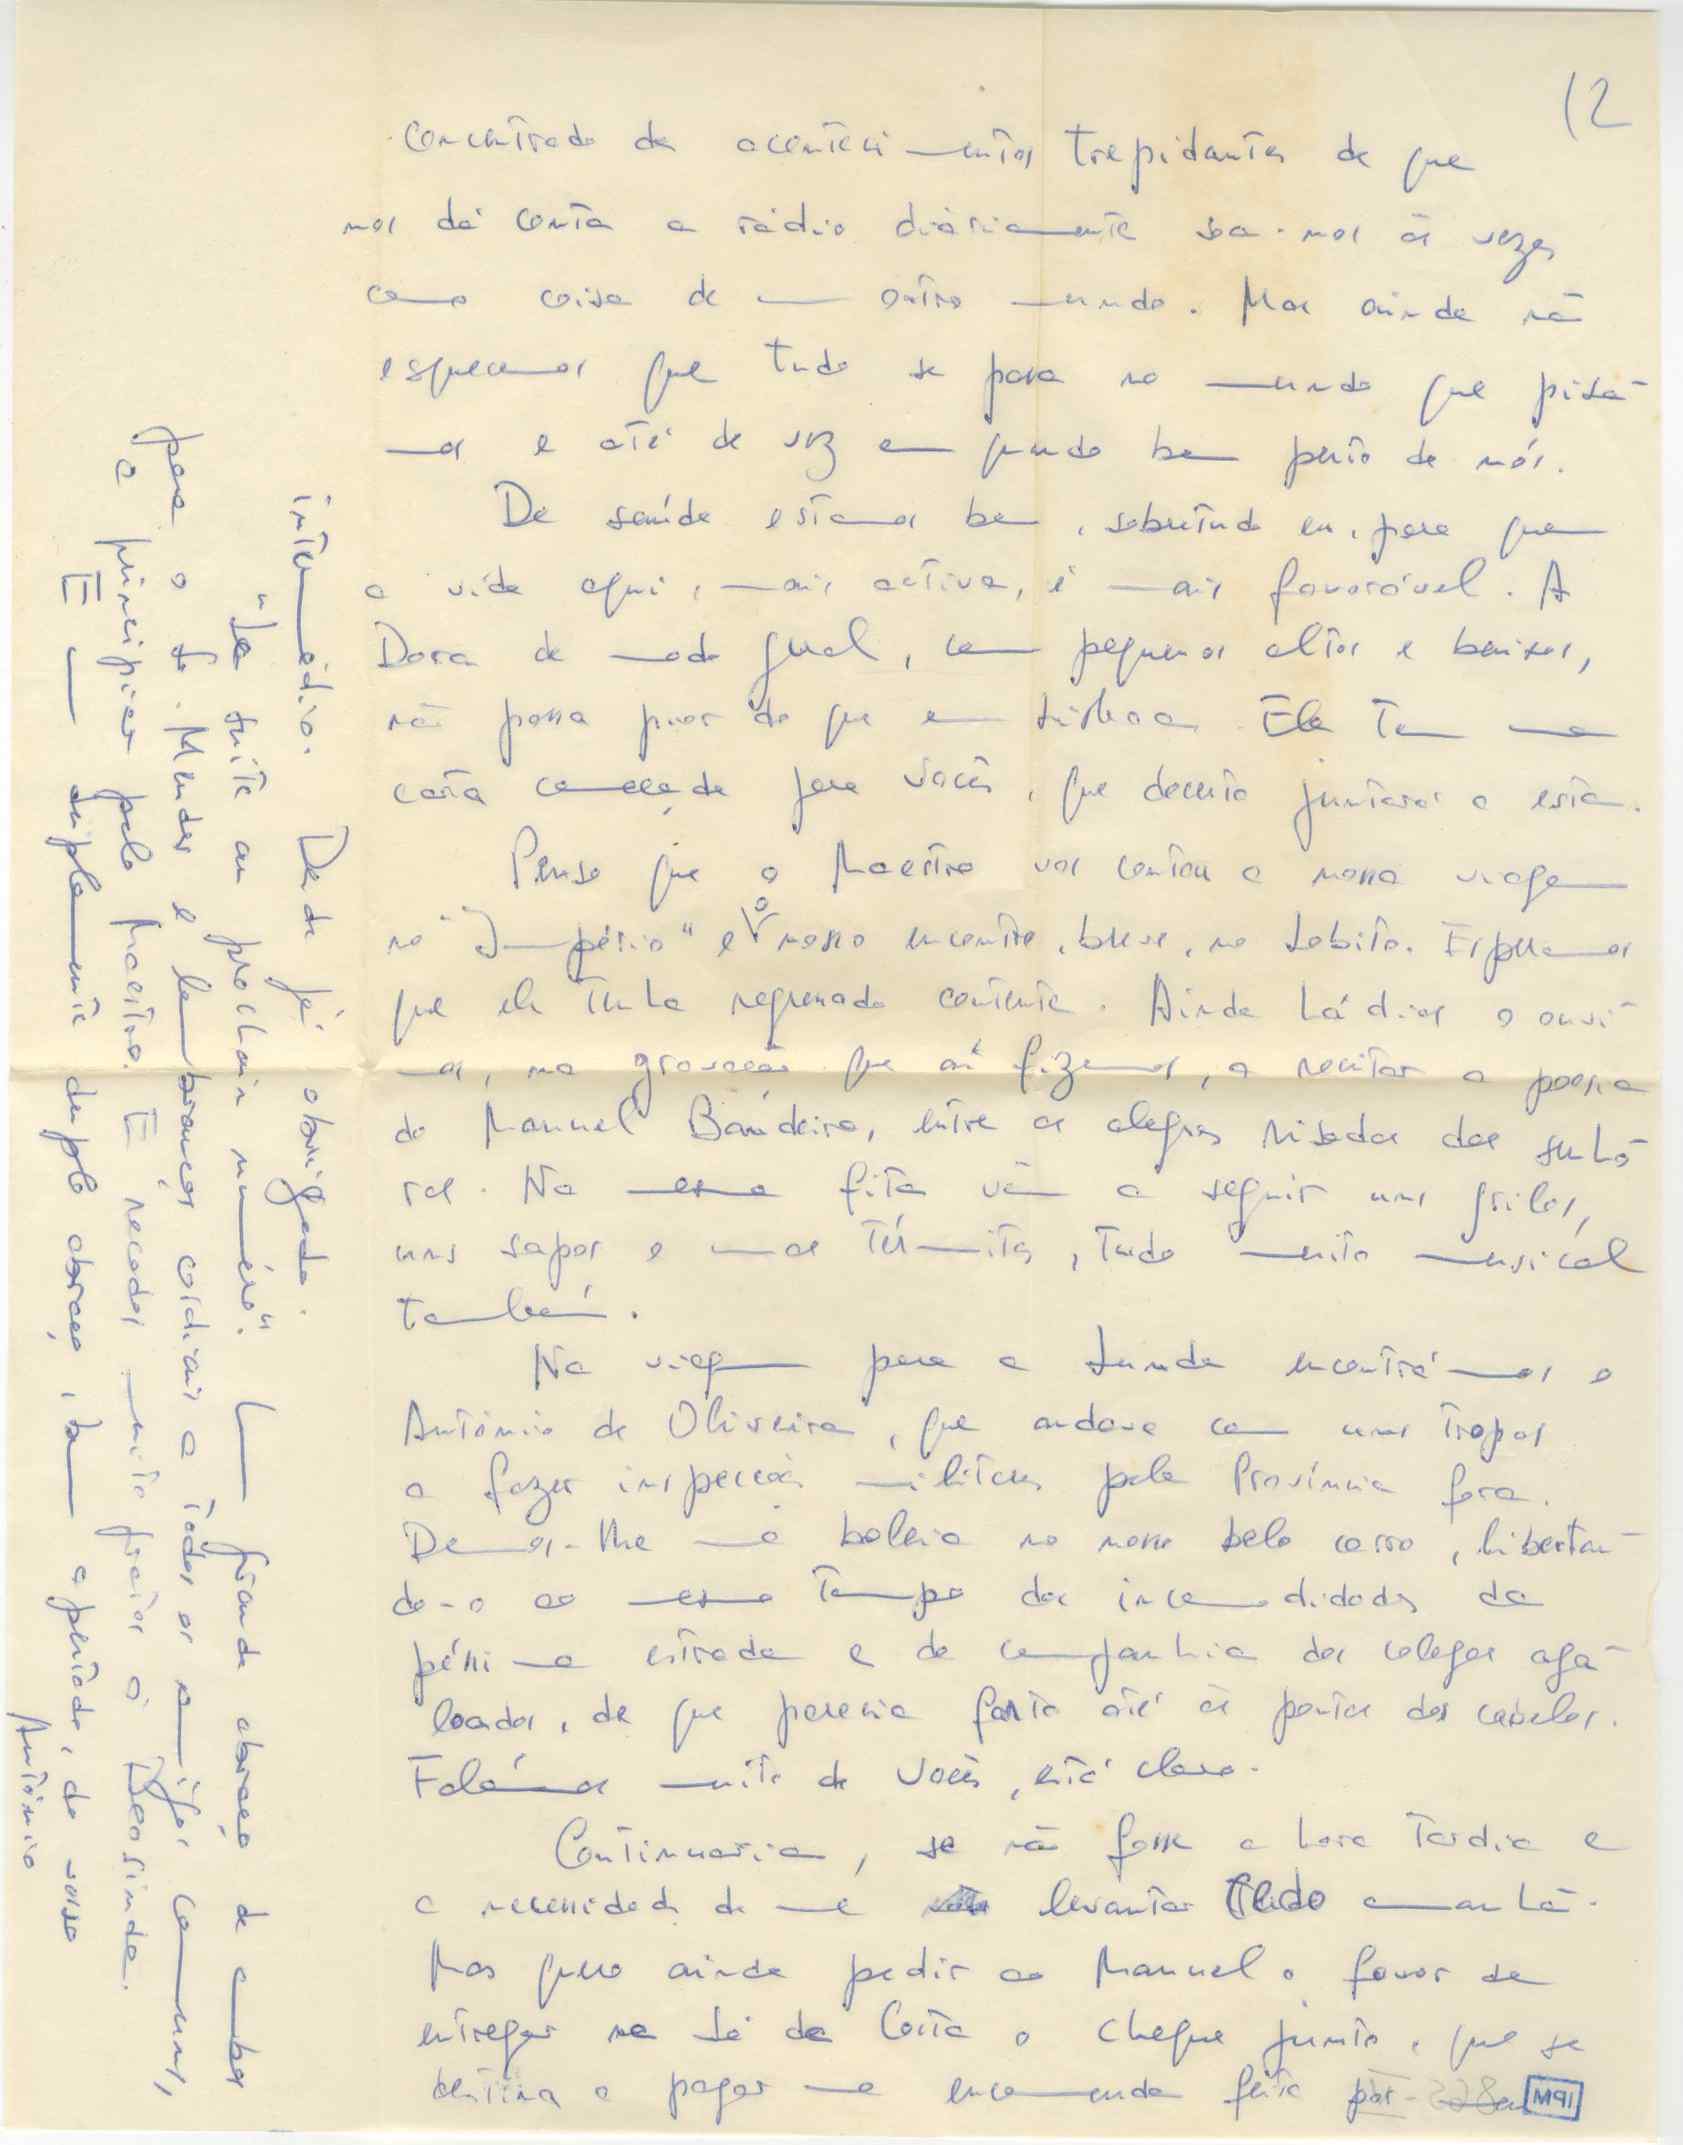 12
concentrado de acontecimentos trepidantes de que
nos dá conta a rádio diàriamente soa-nos às vezes
como coisa de um outro mundo. Mas ainda não
esquecemos que tudo se passa no mundo que pisa-
mos e até de vez em quando bem perto de nós.
De saúde estamos bem, sobretudo eu, para quem
a vida aqui, mais activa, é mais favorável. A
Dora de modo igual, com pequenos altos e baixos,
não passa pior do que em Lisboa. Ela tem uma
carta começada para vocês, que decerto juntará a esta.
Penso que o Maestro vos contou a nossa viagem
no "Império" e o nosso encontro, breve, no Lobito. Esperamos
que ele tenha regressado contente. Ainda há dias o ouvi-
mos, na gravação que aí fizemos, a recitar o poema
do Manuel Bandeira, entre as alegres risadas das senho-
ras. Na mesma fita vêm a seguir uns grilos,
uns sapos e umas térmitas, tudo muito musical
também.
Na viagem para a Lunda encontrámos o
António de Oliveira, que andava com umas tropas
a fazer inspecções militares pela Província fora.
Demos-lhe uma boleia no nosso belo carro, libertan-
do-o ao mesmo tempo das incomodidades da
péssima estrada e da companhia dos colegas aga-
loados, de que parecia farto até às pontas dos cabelos.
Falámos muito de vocês, está claro.
Continuaria, se não fosse a hora tardia e
a necessidade de me levantar cedo amanhã.
Mas quero ainda pedir ao Manuel o favor de
entregar na Sá da Costa o cheque junto, que se
destina a pagar uma encomenda feita por meu
M91
intermédio. Desde já obrigado.
"La suite au prochain numéro". Um grande abraço de ambos
para o Sr. Mendes e lembranças cordiais a todos os amigos comuns,
a principiar pelo Maestro. E recados muito gratos à Deosinda.
E um duplamente duplo abraço, bem apertado, do vosso
António